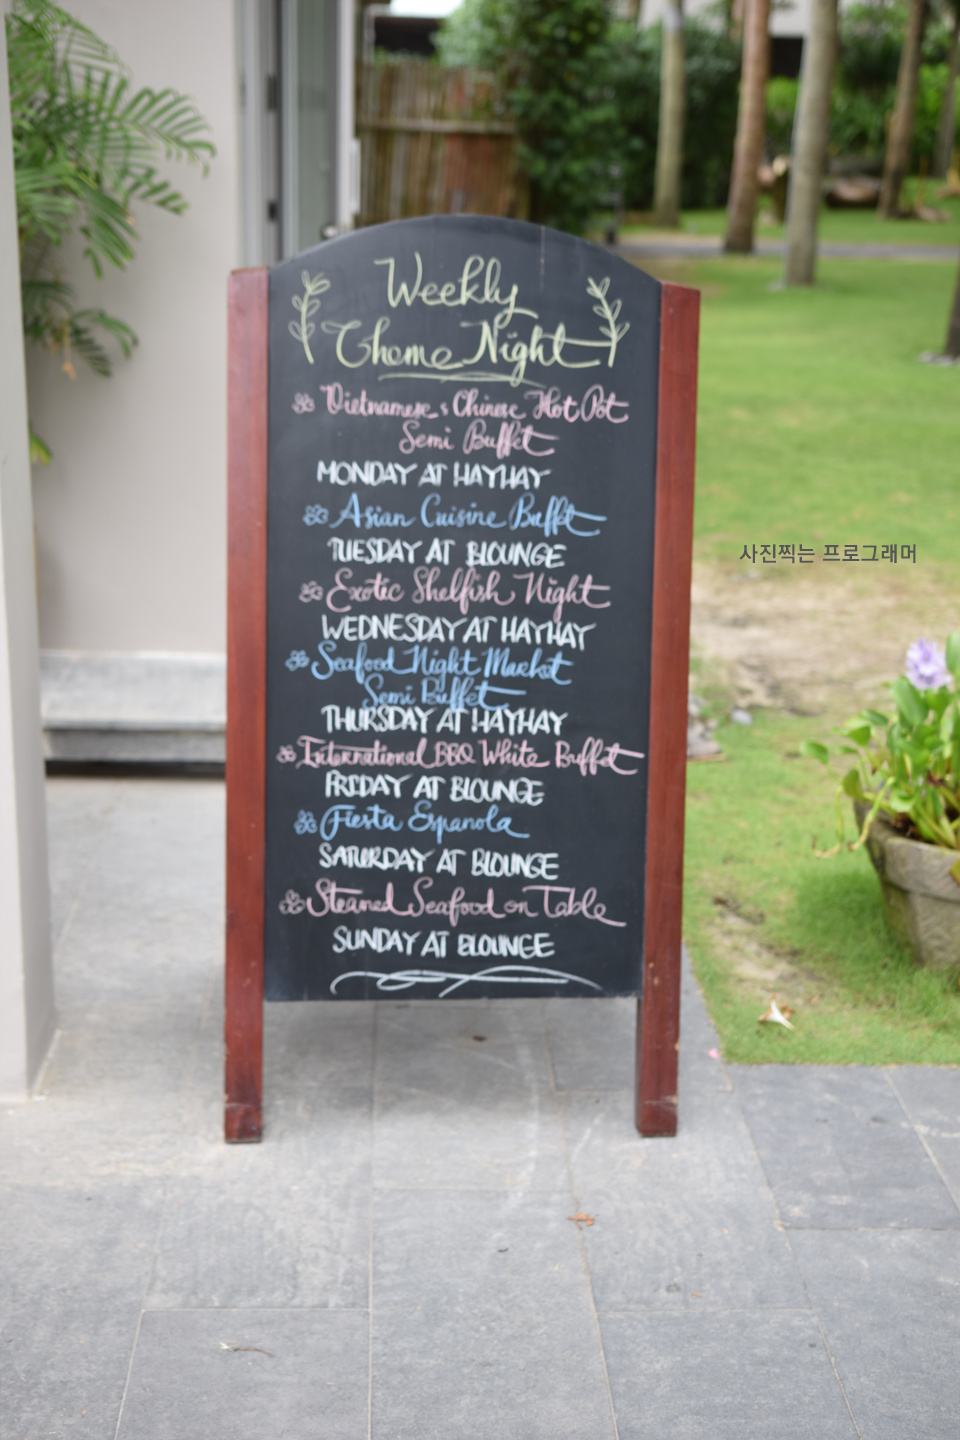 Weekly
Theme Night
Vietnamese & Chinese Hot Pot
Semi Buffet
MONDAY AT HAYHAY
Asian Cuisine Buffet
TUESDAY AT BLOUNGE
Exotic Shelfish Night
WEDNESDAY AT HAYHAY
Seafood Night Market
Semi Buffet
THURSDAY AT HAYHAY
International BBQ White Buffet
FRIDAY AT BLOUNGE
Fiesta Espanola
SATURDAY AT BLOUNGE
Steamed Seafood on Table
SUNDAY AT BLOUNGE
사진찍는 프로그래머